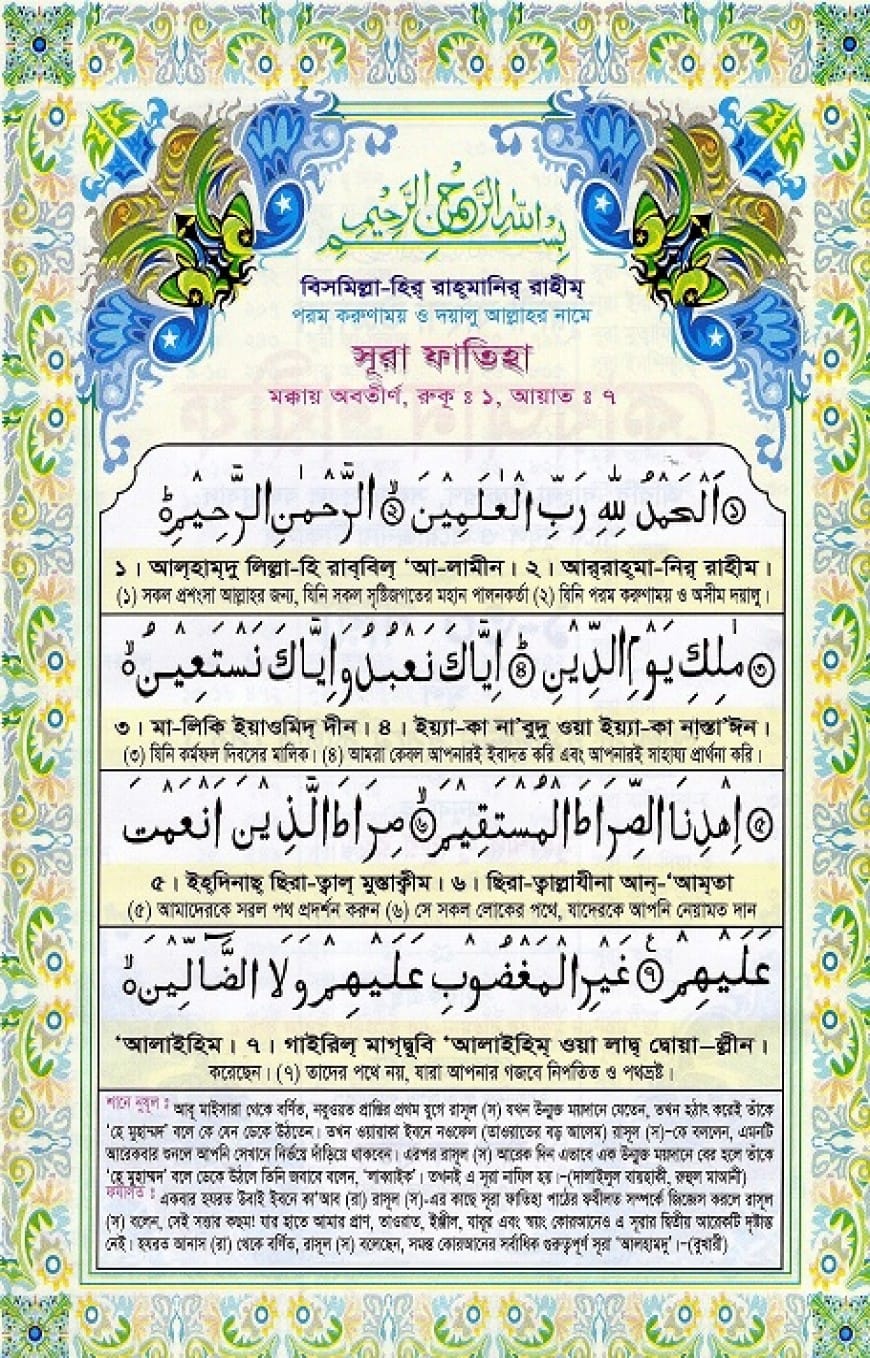 بِسْمِ اللهِ الرَّحْمٰنِ الرَّحِيْمِ
বিসমিল্লা-হির্ রাহ্মানির্ রাহীম্
পরম করুণাময় ও দয়ালু আল্লাহর নামে
সূরা ফাতিহা
মক্কায় অবতীর্ণ, রুকূ ঃ ১, আয়াত ঃ ৭
۝١ اَلْحَمْدُ لِلّٰهِ رَبِّ الْعٰلَمِيْنَ ۝٢ الرَّحْمٰنِ الرَّحِيْمِ
১। আল্হাম্দু লিল্লা-হি রাব্বিল্ ‘আ-লামীন। ২। আর্রাহ্মা-নির্ রাহীম।
(১) সকল প্রশংসা আল্লাহর জন্য, যিনি সকল সৃষ্টিজগতের মহান পালনকর্তা (২) যিনি পরম করুণাময় ও অসীম দয়ালু।
۝٣ مٰلِكِ يَوْمِ الدِّيْنِ ۝٤ اِيَّاكَ نَعْبُدُ وَاِيَّاكَ نَسْتَعِيْنُ
৩। মা-লিকি ইয়াওমিদ্ দীন। ৪। ইয়্যা-কা না'বুদু ওয়া ইয়্যা-কা নাস্তা'ঈন।
(৩) যিনি কর্মফল দিবসের মালিক। (৪) আমরা কেবল আপনারই ইবাদত করি এবং আপনারই সাহায্য প্রার্থনা করি।
۝٥ اِهْدِنَا الصِّرَاطَ الْمُسْتَقِيْمَ ۝٦ صِرَاطَ الَّذِيْنَ اَنْعَمْتَ
৫। ইহ্দিনাছ্ ছিরা-ত্বাল্ মুস্তাক্বীম। ৬। ছিরা-ত্বাল্লাযীনা আন্-‘আম্তা
(৫) আমাদেরকে সরল পথ প্রদর্শন করুন (৬) সে সকল লোকের পথে, যাদেরকে আপনি নেয়ামত দান
عَلَيْهِمْ ۝٧ غَيْرِ الْمَغْضُوْبِ عَلَيْهِمْ وَلَا الضَّآلِّيْنَ
‘আলাইহিম। ৭। গাইরিল্ মাগ্দ্বূবি ‘আলাইহিম্ ওয়া লাদ্ব দ্বোয়া–ল্লীন।
করেছেন। (৭) তাদের পথে নয়, যারা আপনার গজবে নিপতিত ও পথভ্রষ্ট।
শানে নুযূল ঃ আবূ মাইসারা থেকে বর্ণিত, নবুওয়ত প্রাপ্তির প্রথম যুগে রাসূল (স) যখন উন্মুক্ত ময়দানে যেতেন, তখন হঠাৎ করেই তাঁকে
‘হে মুহাম্মদ’ বলে কে যেন ডেকে উঠতেন। তখন ওয়ারাকা ইবনে নওফেল (তাওরাতের বড় আলেম) রাসূল (স)-কে বললেন, এমনটি
আরেকবার শুনলে আপনি সেখানে নির্ভয়ে দাঁড়িয়ে থাকবেন। এরপর রাসূল (স) আরেক দিন এভাবে এক উন্মুক্ত ময়দানে বের হলে তাঁকে
‘হে মুহাম্মদ’ বলে ডেকে উঠলে তিনি জবাবে বলেন, ‘লাব্বাইক’। তখনই এ সূরা নাযিল হয়।-(দালাইলুল বায়হাকী, রুহুল মাআনী)
ফযীলত ঃ একবার হযরত উবাই ইবনে কা'আব (রা) রাসূল (স)-এর কাছে সূরা ফাতিহা পাঠের ফযীলত সম্পর্কে জিজ্ঞেস করলে রাসূল
(স) বলেন, সেই সত্তার কছম! যার হাতে আমার প্রাণ, তাওরাত, ইঞ্জীল, যাবূর এবং স্বয়ং কোরআনেও এ সূরার দ্বিতীয় আরেকটি দৃষ্টান্ত
নেই। হযরত আনাস (রা) থেকে বর্ণিত, রাসূল (স) বলেছেন, সমস্ত কোরআনের সর্বাধিক গুরুত্বপূর্ণ সূরা ‘আলহামদু’।-(বুখারী)